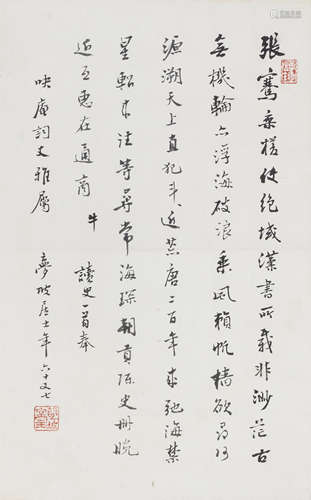 張騫乘槎使絕域漢書所載非渺茫古
無機輪與浮海破浪乘風賴帆檣欲尋河
源溯天上直犯斗近焉唐二百年來弛海禁
星軺來往等尋常海琛朝貢陳史冊晚
近互惠在通商
牛
讀史一首奉
呋庵詞丈雅屬
夢坡居士年六十又七